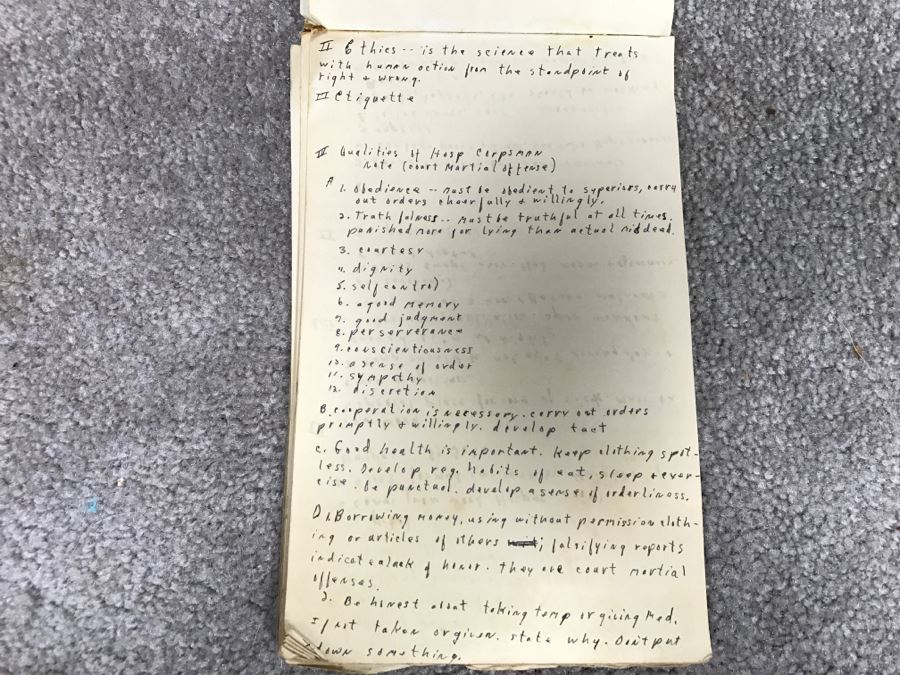 II Ethics -- is the science that treats
with human action from the standpoint of
right & wrong.
III Etiquette
IV Qualities of Hosp Corpsman
note (court martial offense)
A 1. Obedience -- must be obedient to superiors, carry
out orders cheerfully & willingly.
2. Truth fulness -- must be truthful at all times.
punished more for lying than actual misdeed.
3. courtesy
4. dignity
5. self control
6. a good memory
7. good judgment
8. perserverance
9. conscientiousness
10. a sense of order
11. sympathy
12. discretion
B. cooperation is necessary. carry out orders
promptly & willingly. develop tact
C. Good health is important. Keep clothing spot-
less. Develop reg. habits of eat, sleep & exer-
cise. be punctual. develop a sense of orderliness.
D 1. Borrowing money, using without permission cloth-
ing or articles of others ; falsifying reports
indicate a lack of honor. they are court martial
offenses.
2. Be honest about taking temp or giving med.
If not taken or given. state why. Don't put
down something.